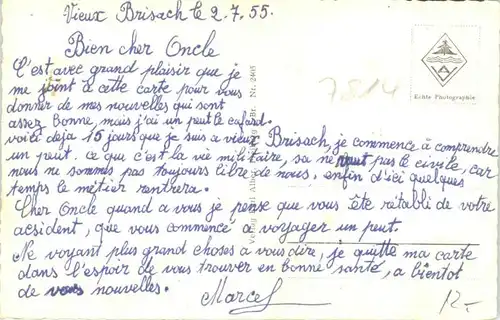 Vieux Brisach le 2.7.55.
Bien cher Oncle
C'est avec grand plaisir que je
me joint à cette carte pour vous
donner de mes nouvelles qui sont
assez bonne, mais j'ai un peut le cafard.
voila deja 15 jours que je suis a vieux Brisach, je commence à comprendre
un peut. ce que c'est la vie militaire, sa ne vaut pas le civile, car
nous ne sommes pas toujours libre de nous. enfin d'ici quelques
temps le métier rentrera.
Cher Oncle quand a vous je pense que vous ête rétabli de votre
acsident, que vous commencé a voyager un peut.
Ne voyant plus grand choses a vous dire, je quitte ma carte
dans l'espoir de vous trouver en bonne santé, a bientot
de vos nouvelles.
Marcel
7814
Echte Photographie
Nr. 2405
12.-